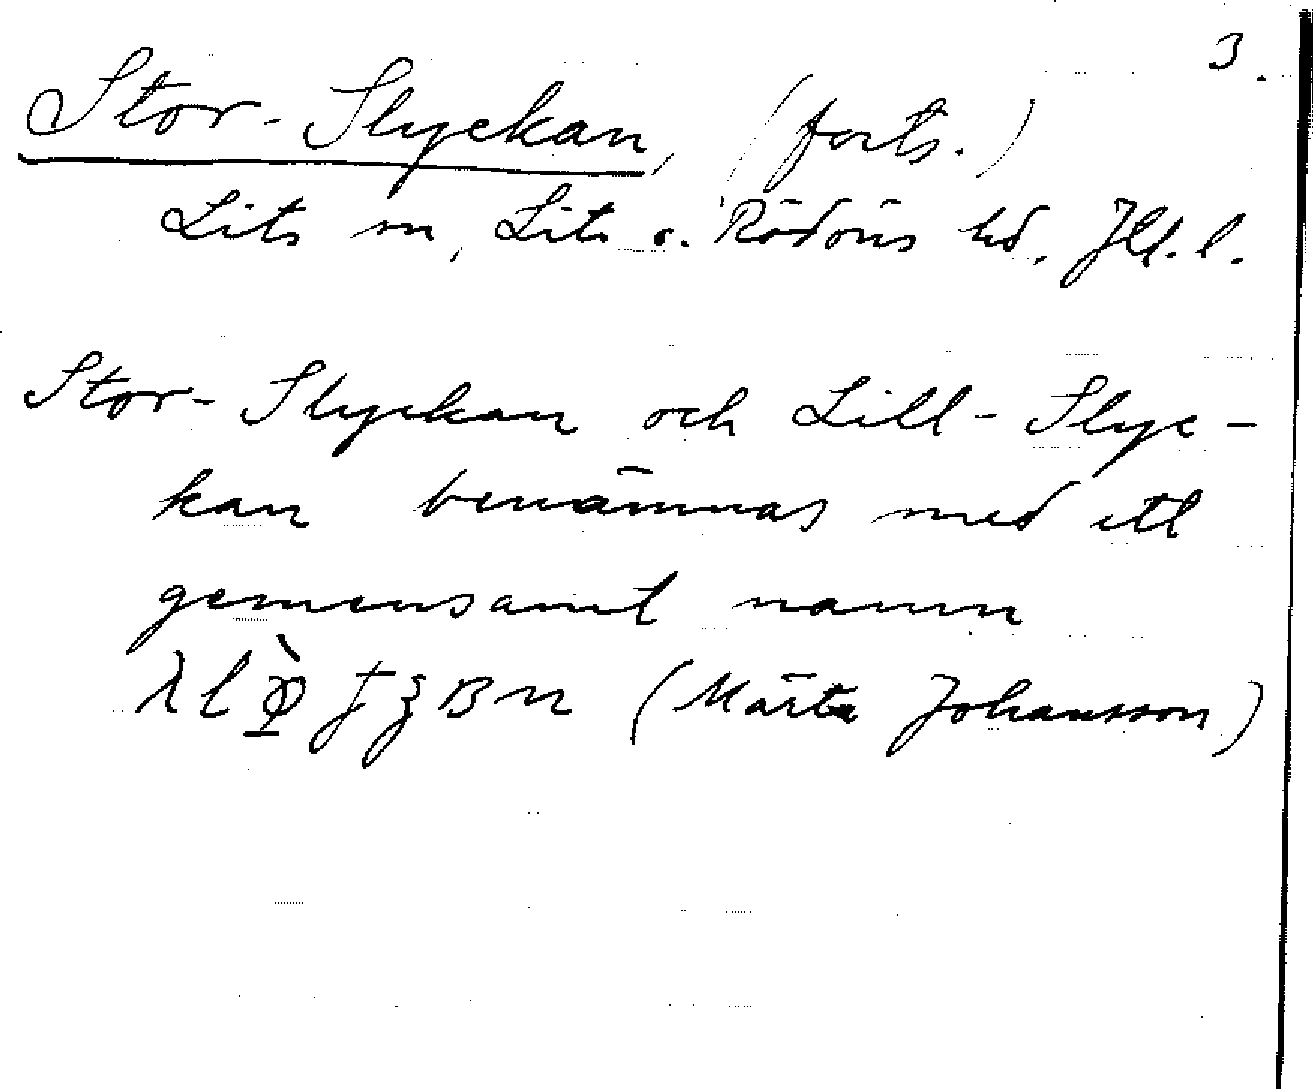 3.
Stor-Slyckan, (forts.)
Lits sn, Lits o. Rödöns hd. Jtl. l.
Stor-Slyckan och Lill-Slyc-
kan benämnas med ett
gemensamt namn
(Märta Johansson)